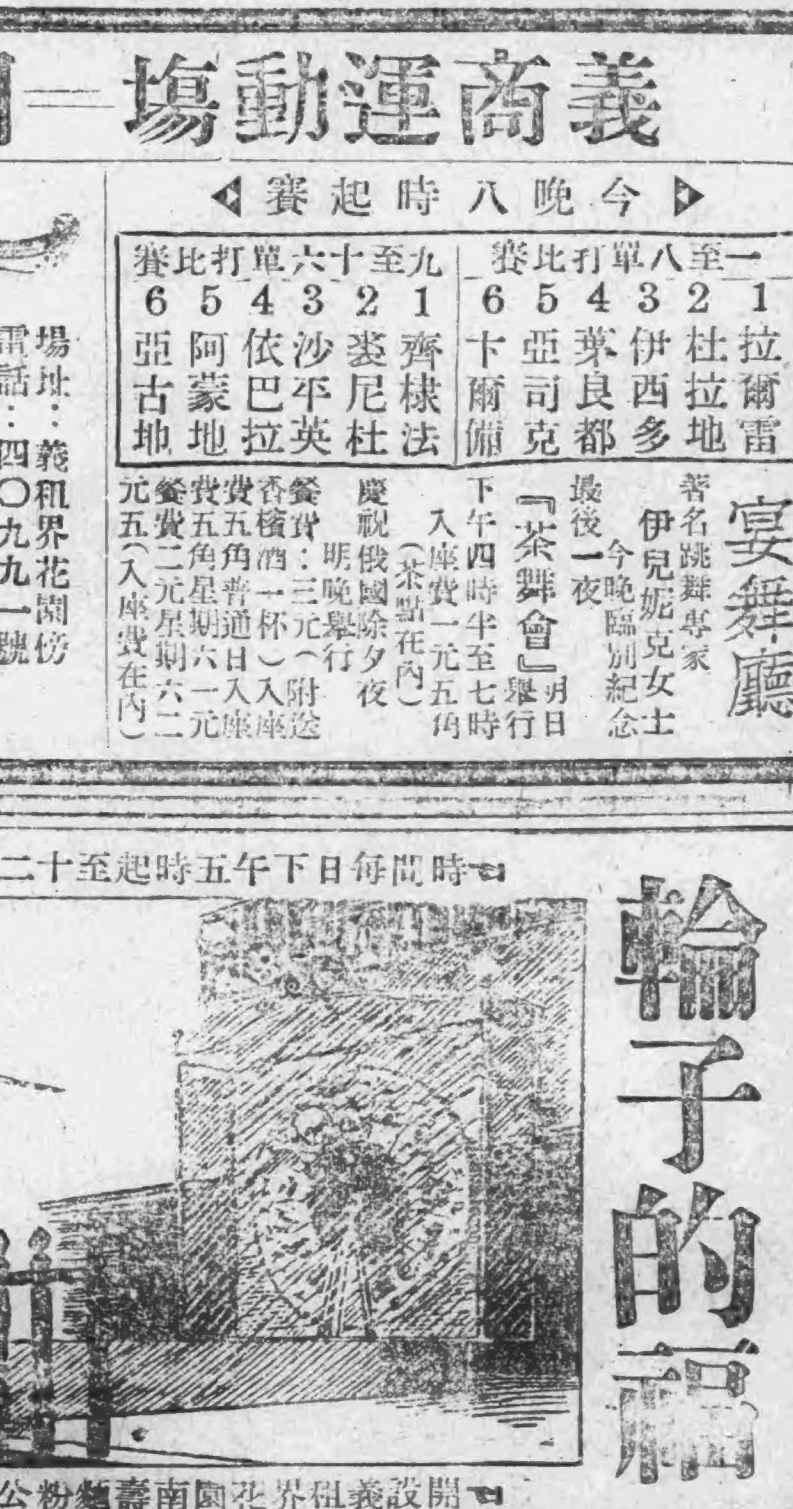 義商運動塲
今晚八時起賽
一至八單打比賽
1拉爾雷
2杜拉地
3伊西多
4葉良都
5亞司克
6卡爾備
九至十六單打比賽
1齊棣法
2裘尼杜
3沙平英
4依巴拉
5阿蒙地
6亞古地
宴舞廳
著名跳舞專家
伊兒妮克女士
今晚臨別紀念
最後一夜
明日舉行
『茶舞會』
下午四時半至七時
入座費一元五角
（茶點在內）
慶祝俄國除夕夜
明晚舉行
餐費：三元（附送
香檳酒一杯）入座
費五角普通日入座
費五角星期六一元
餐費二元星期六二
元五（入座費在內）
場址：義租界花園傍
電話：四〇九九一號
輪子的福
時間每日下午五時起至十二
開設義租界花園南壽麵粉公